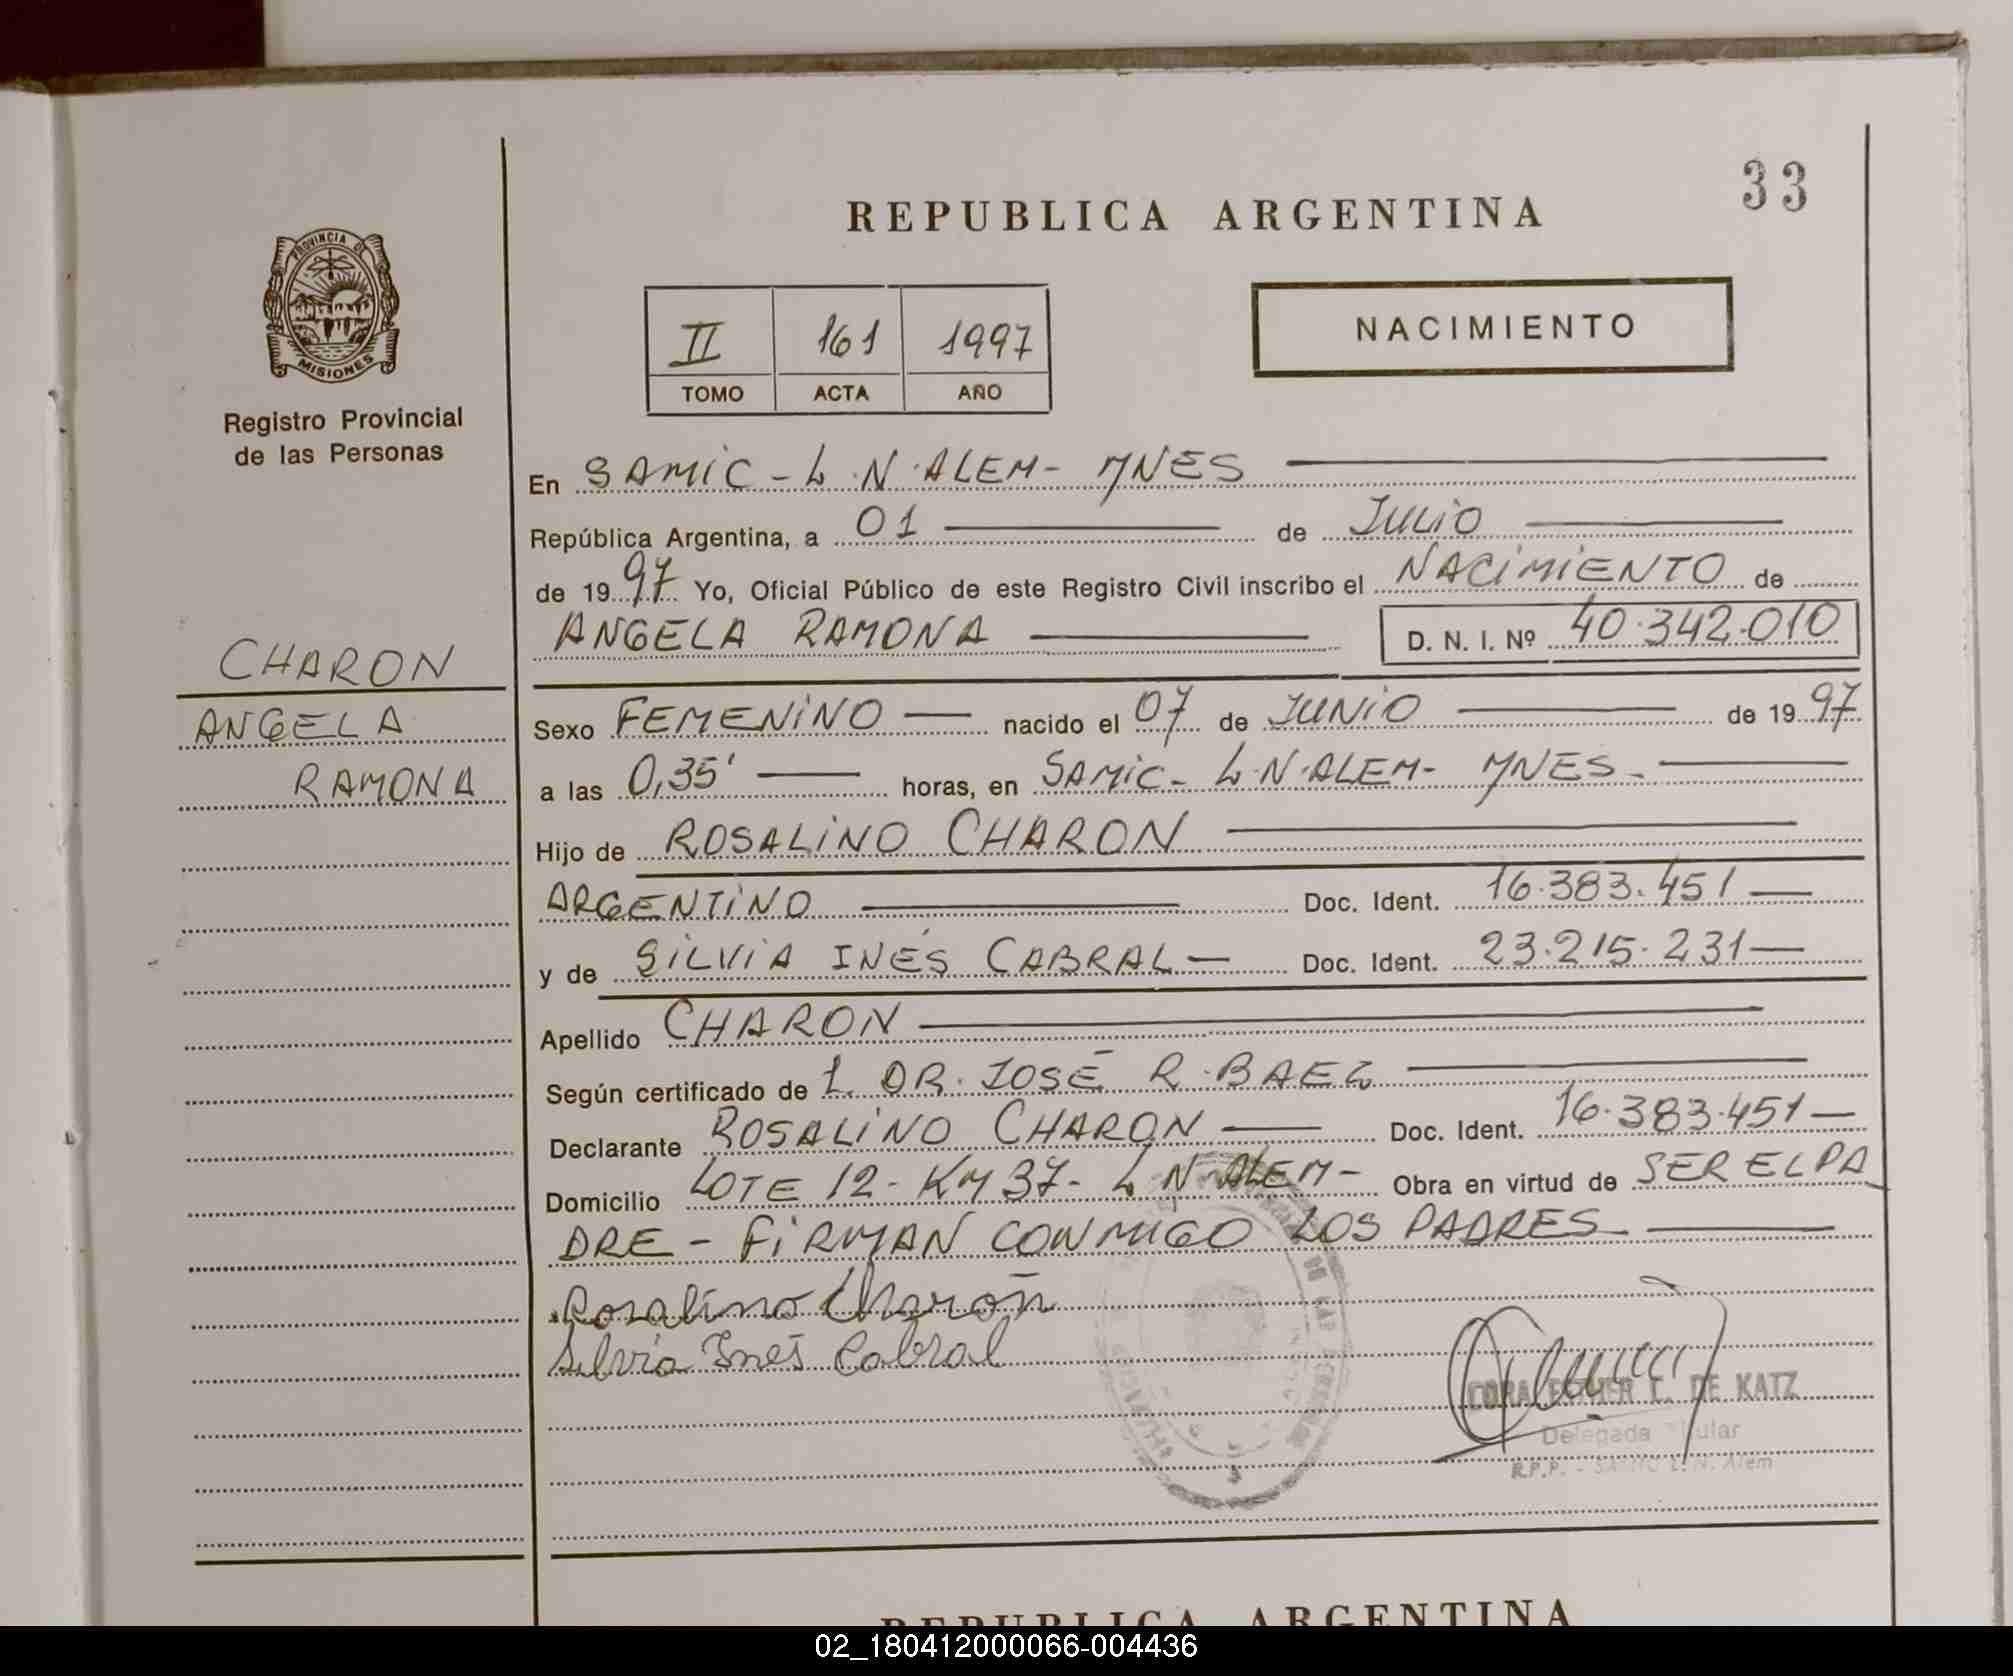 33
REPUBLICA ARGENTINA
PROVINCIA DE
MISIONES
Registro Provincial
de las Personas
II 161 1997
TOMO ACTA AÑO
NACIMIENTO
CHARON
ANGELA
RAMONA
En SAMIC - L.N. ALEM - MNES
República Argentina, a 01 de JULIO
de 1997 Yo, Oficial Público de este Registro Civil inscribo el NACIMIENTO de
ANGELA RAMONA D. N. I. Nº 40.342.010
Sexo FEMENINO nacido el 07 de JUNIO de 1997
a las 0,35' horas, en SAMIC - L.N. ALEM - MNES -
Hijo de ROSALINO CHARON
ARGENTINO Doc. Ident. 16.383.451
y de SILVIA INÉS CABRAL Doc. Ident. 23.215.231
Apellido CHARON
Según certificado de 1. DR. JOSÉ R. BAEZ
Declarante ROSALINO CHARON Doc. Ident. 16.383.451
Domicilio LOTE 12 - KM 37 - L N ALEM - Obra en virtud de SER EL PA
DRE - FIRMAN CONMIGO LOS PADRES
Rosalino Charón
Silvia Inés Cabral
CORA ESTHER DE KATZ
Delegada Titular
R.P.P. - SAMIC L. N. Alem
REPUBLICA ARGENTINA
02_180412000066-004436